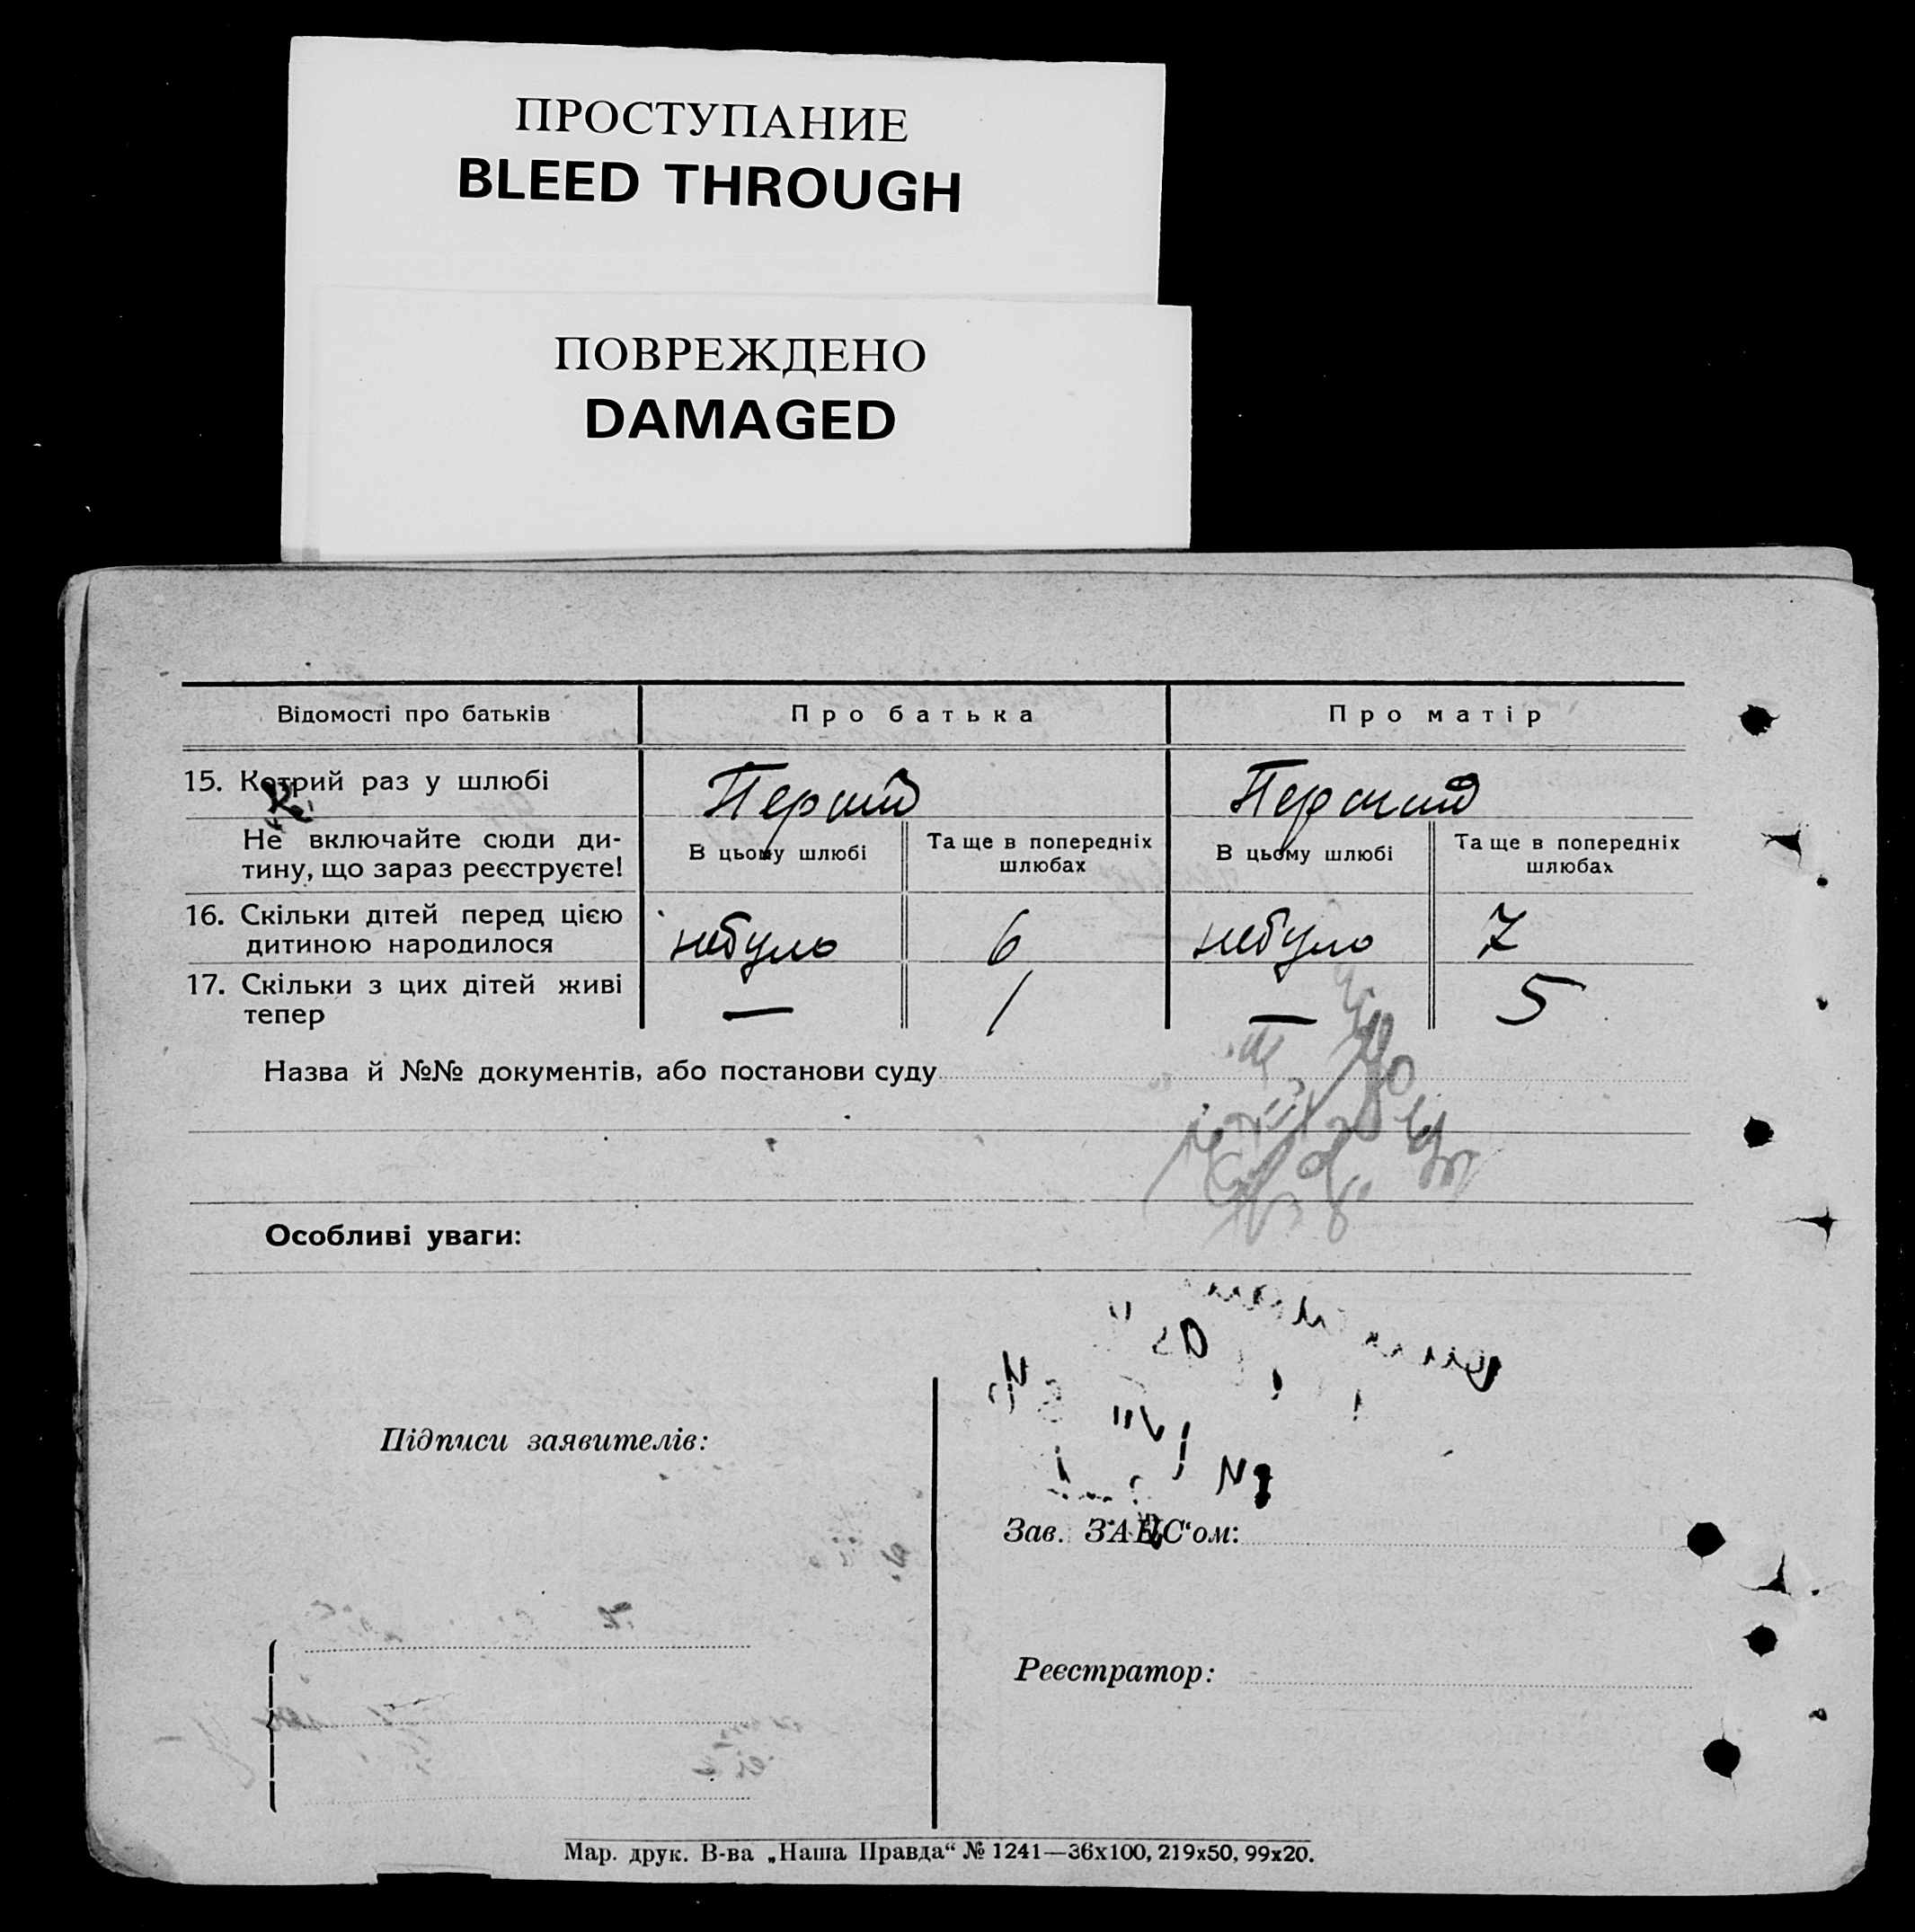 ПРОСТУПАНИЕ
BLEED THROUGH
ПОВРЕЖДЕНО
DAMAGED
Відомості про батьків Про батька Про матір
15. Котрий раз у шлюбі Перший Перший
Не включайте сюди ди-
тину, що зараз реєструєте!
В цьому шлюбі Та ще в попередніх шлюбах В цьому шлюбі Та ще в попередніх шлюбах
16. Скільки дітей перед цією
дитиною народилося небуло 6 небуло 7
17. Скільки з цих дітей живі
тепер — 1 — 5
Назва й №№ документів, або постанови суду
Особливі уваги:
Підписи заявителів:
Зав. ЗАГС'ом:
Реєстратор:
Мар. друк. В-ва „Наша Правда“ № 1241—36х100, 219х50, 99х20.